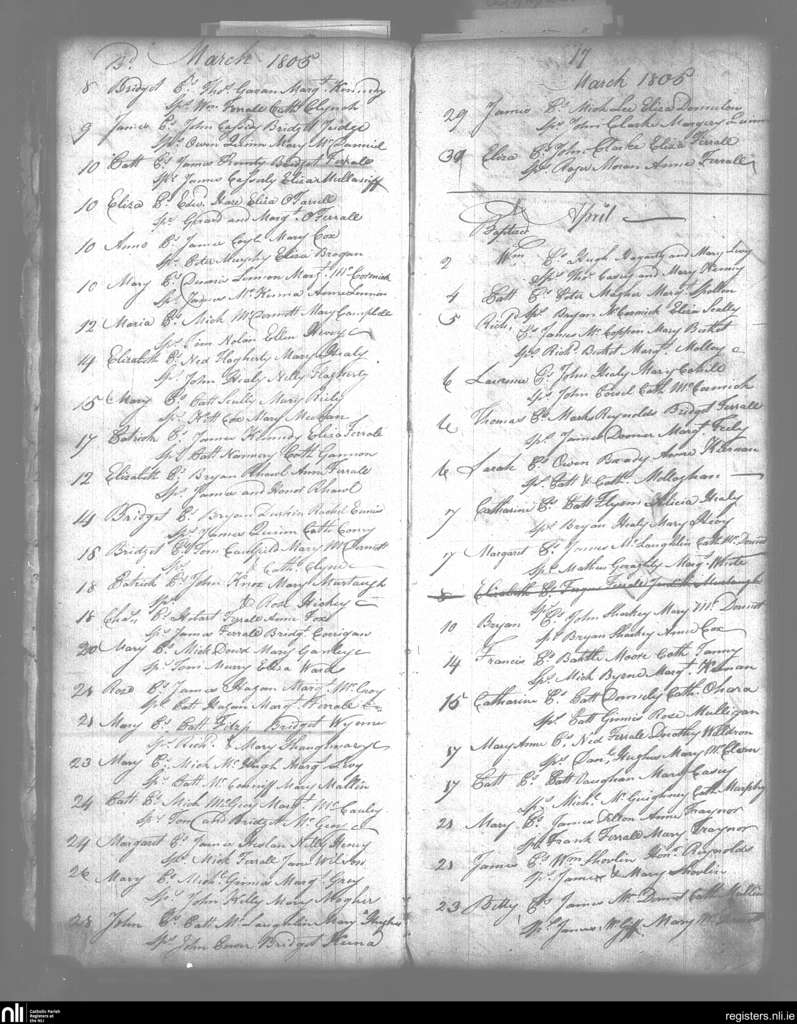 Bs. March 1805
8 Bridget Ps. Thos. Gavan Margt. Kennedy
Sps. Wm. Ferrall Cath. Clynch
9 James Ps. John Cassidy Bridget Judge
Sps. Owen Quinn Mary McDaniel
10 Patt Ps. James Prunty Bridget Ferrall
Sps. James Casserly Eliza
10 Eliza Ps. Edw. Hare Eliza O'Farrell
Sps. Gerard and Margt. O'Ferrall
10 Anne Ps. James Coyle Mary Cox
Sps. Peter Murphy Eliza Brogan
10 Mary Ps. Dennis Lennon Margt. McCormick
Sps. James McKenna Anne Lennon
12 Maria Ps. Mich McCormott Mary Campbell
Sps. Pier Nolan Ellen Hervey
14 Elizabeth Ps. Ned Flagherty Mary Healy
Sps. John Healy Nelly Flagherty
15 Mary Ps. Patt Scully Mary Reily
Sps. Matt Cox Mary Meehan
17 Patrick Ps. James Kennedy Eliza Ferrall
Sps. Patt Cath Gannon
12 Elizabeth Ps. Bryan Anne Ferrall
Sps. James and Honor
14 Bridget Ps. Bryan Rachel Ennis
Sps. James Quinn Cath Conry
18 Bridget Ps. Tom Caulfield Mary McDermott
Sps. & Cath Clyne
18 Patrick Ps. John Knox Mary Murtaugh
Sps. & Rose Hickey
18 Chas. Ps. Robart Ferrall Anne Fox
Sps. James Ferrall Bridgt. Corrigan
20 Mary Ps. Mick Dowd Mary Ganley
Sps. Tom Murry Eliza Ward
21 Rose Ps. James Hagan Margt. McCroy
Sps. Pat Hagan Margt. Ferrall
21 Mary Ps. Patt Fitzp Bridget Wynne
Sps. Richd. & Mary Shaughnassy
23 Mary Ps. Mick McHugh Margt. Leoy
Sps. Patt McConniff Mary Mallin
24 Patt Ps. Mick McGrey Margt. McCauley
Sps. Tom and Bridget McGrey
24 Margaret Ps. James Nelly Henry
Sps. Mick Ferrall Jane Wilson
26 Mary Ps. Mich. Ginnis Margt. Grey
Sps. John Kelly Mary Magher
28 John Ps. Patt McLaughlin Mary Hughes
Sps. John Bridget Keena
17
March 1805
29 James Ps. Mich Lee Eliza Donnelon
Sps. John Clarke Margery
30 Eliza Ps. John Clarke Eliza Ferrall
Sps. Roger Moran Anne Ferrall
April
Baptised
2 Wm. Ps. Hugh Hagarty and Mary Levy
Sps. Thos. Casey and Mary Kenny
4 Patt Ps. Peter Magher Margt. Spollen
Sps. Bryan McCormick Eliza Scally
5 Richd. Ps. James McCoppin Mary Birket
Sps. Richd. Birket Margt. Molloy
6 Laurence Ps. John Healy Mary Cahill
Sps. John Cath McCormick
6 Thomas Ps. Mark Reynolds Bridget Ferrall
Sps. James Margt. Feely
6 Sarah Ps. Owen Brady Anne Kiernan
Sps. Patt & Cathe. Mollaghan
7 Catharine Ps. Patt Flynn Alicia Healy
Sps. Bryan Healy Mary Leoy
7 Margaret Ps. James McLaughlin Cath McDermott
Sps. Mathew Geraghty Margt. White
8 Elizabeth Ps. Fergus Ferrall Murtaugh
10 Bryan Ps. John Sharkey Mary McDermott
Sps. Bryan Sharkey Anne Cox
14 Francis Ps. Bartle Moore Cath Fanny
Sps. Mich Byrne Margt. Kiernan
15 Catharine Ps. Patt Daniely Cath. Ohara
Sps. Patt Ginnis Rose Mulligan
17 Mary Anne Ps. Ned Ferrall Dorothy Waldron
Sps. Danl. Hughes Mary McClean
17 Patt Ps. Patt Vaughan Mary Casey
Sps. Mich. McGuighney Cath Murphy
21 Mary Ps. James Dillon Anne Traynor
Sps. Frank Ferrall Mary Traynor
21 James Ps. Wm. Shevlin Honr. Reynolds
Sps. James & Mary Shevlin
23 Betty Ps. James McDermott Cath Mullin
Sps. James Mary McDermott
nli
Catholic Parish
Registers at
the NLI
registers.nli.ie